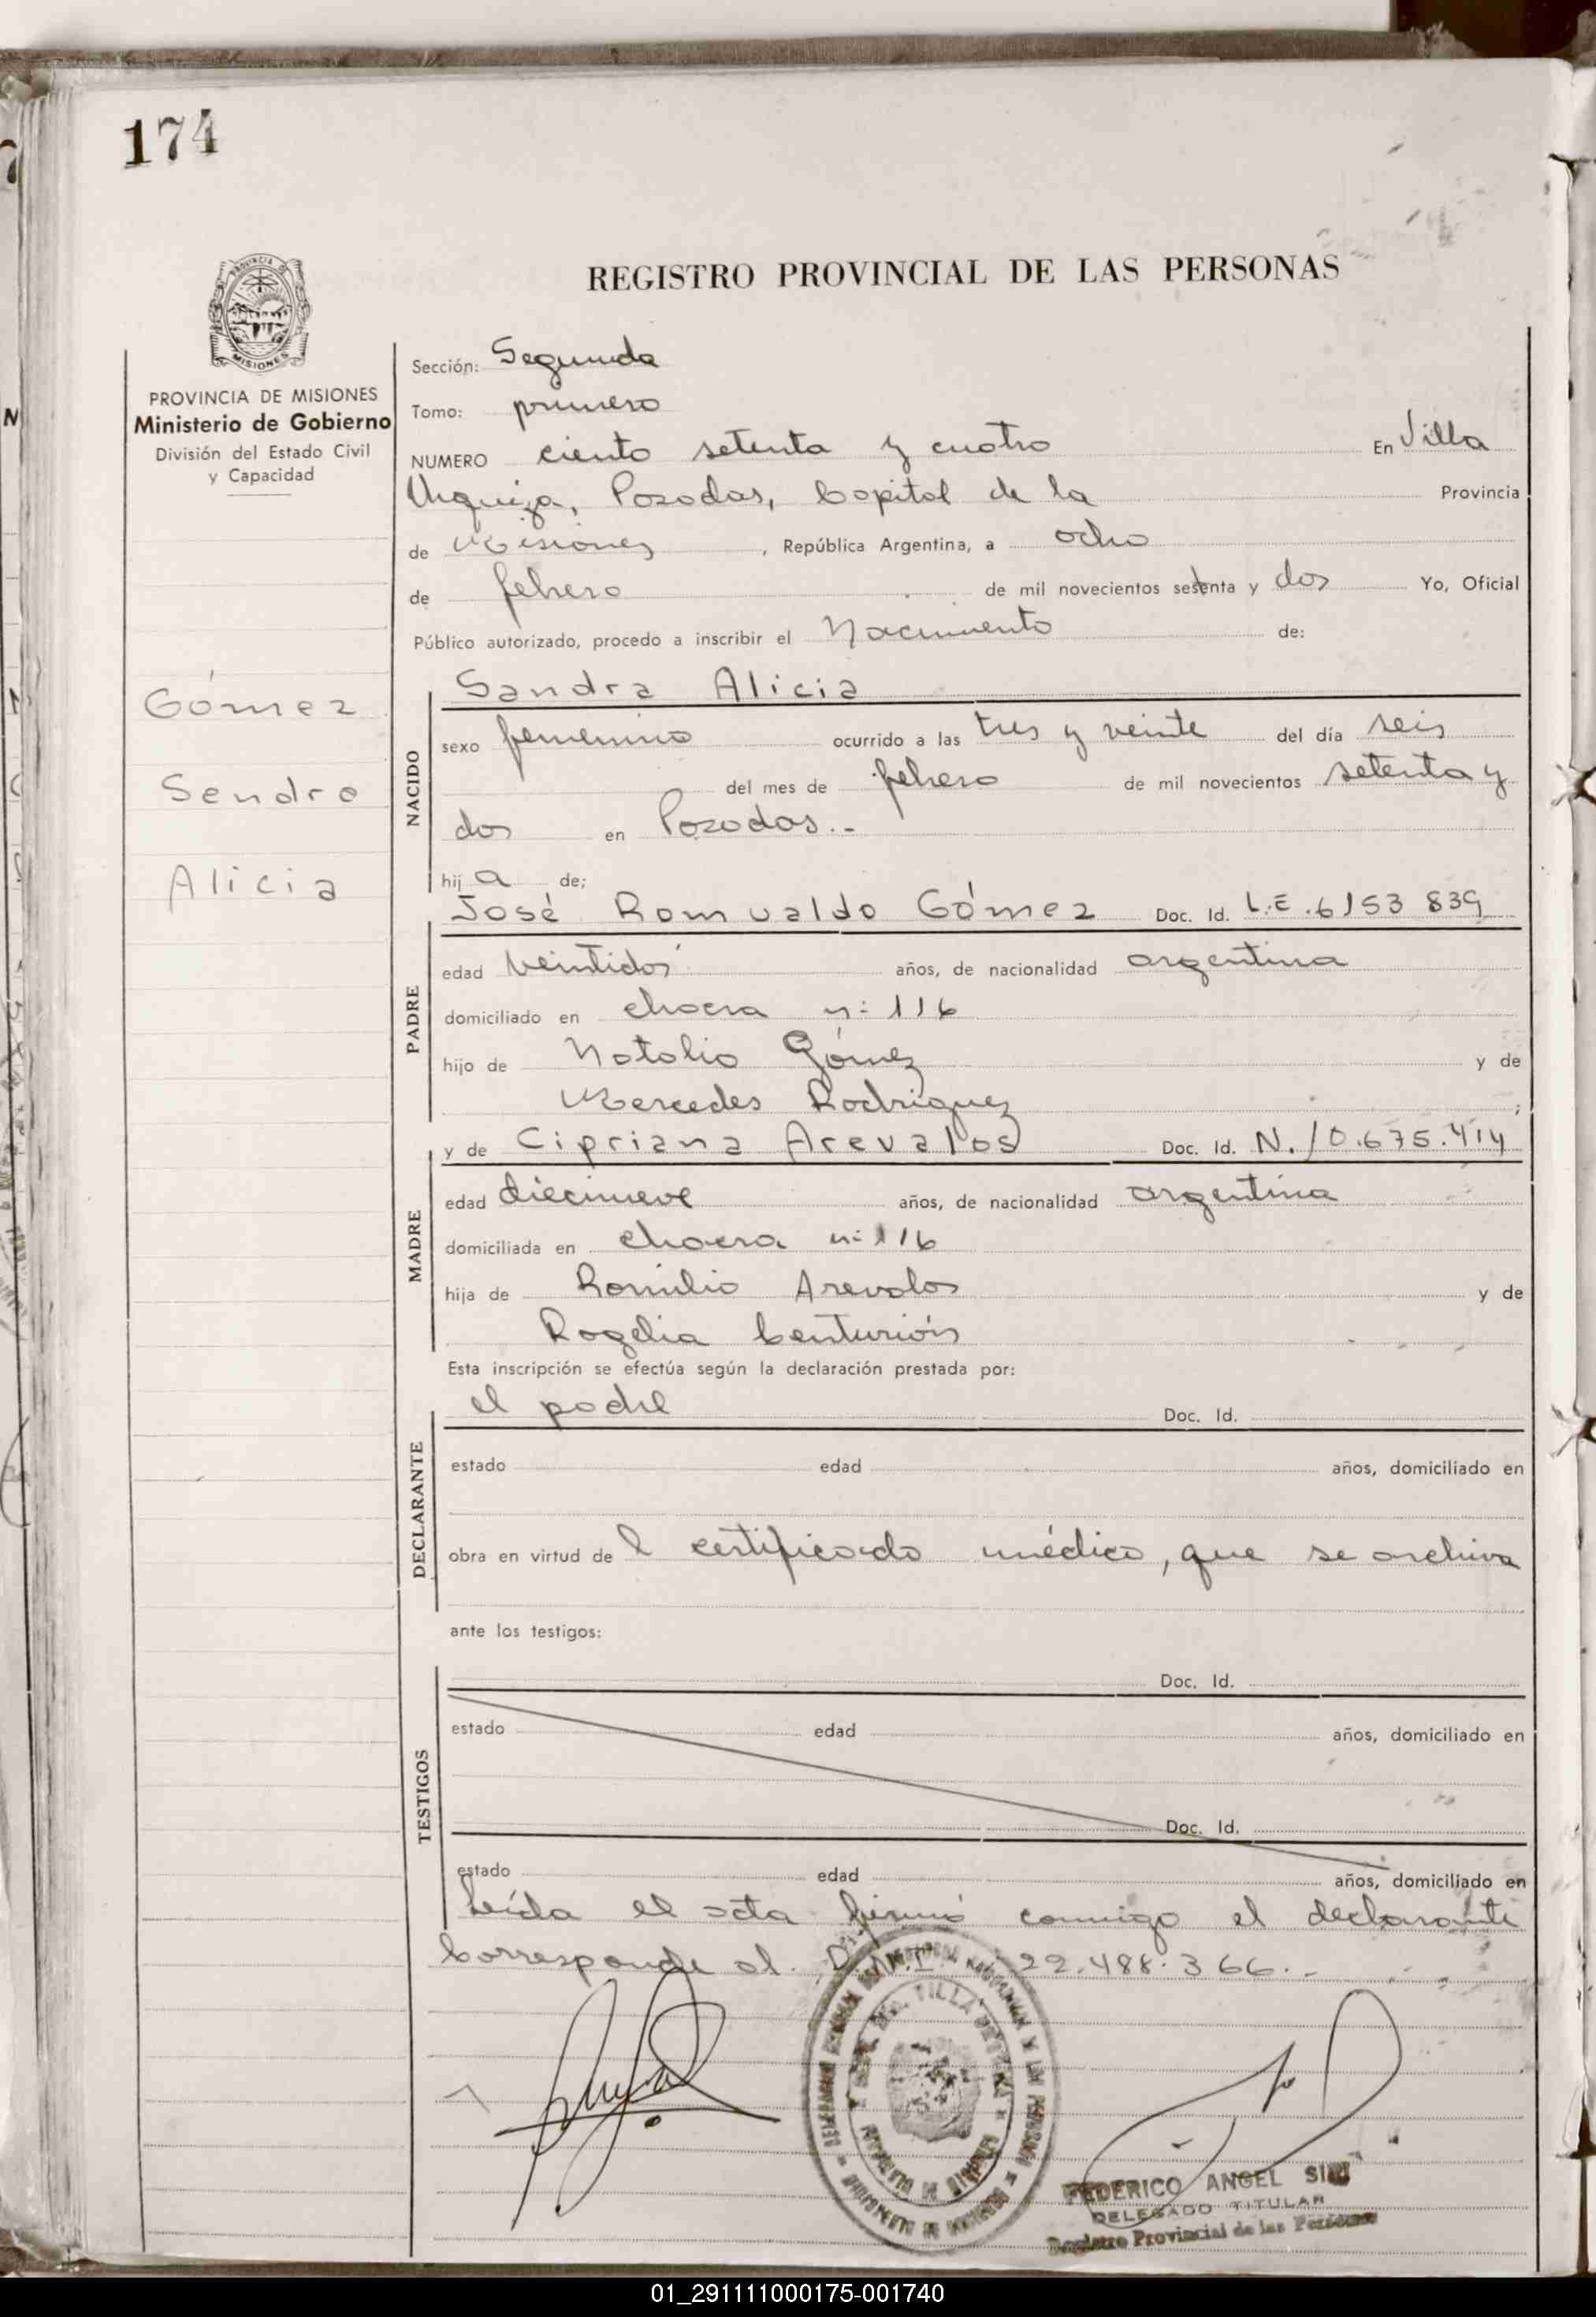 174
REGISTRO PROVINCIAL DE LAS PERSONAS
PROVINCIA DE MISIONES
Ministerio de Gobierno
División del Estado Civil
y Capacidad
Gómez
Sandra
Alicia
Sección: Segunda
Tomo: primero
NUMERO ciento setenta y cuatro En Villa
Urquiza, Posadas, Capital de la Provincia
de Misiones, República Argentina, a ocho
de febrero de mil novecientos setenta y dos Yo, Oficial
Público autorizado, procedo a inscribir el Nacimiento de:
NACIDO
Sandra Alicia
sexo femenino ocurrido a las tres y veinte del día seis
del mes de febrero de mil novecientos setenta y
dos en Posadas.-
hij a de;
PADRE
José Romualdo Gómez Doc. Id. L.E. 6153 839
edad veintidos años, de nacionalidad argentina
domiciliado en chacra n: 116
hijo de Natalio Gómez y de
Mercedes Rodriguez ;
MADRE
y de Cipriana Arevalos Doc. Id. N. 10.675.414
edad diecinueve años, de nacionalidad argentina
domiciliada en chacra n: 116
hija de Romilio Arevalos y de
Rogelia Centurión
Esta inscripción se efectúa según la declaración prestada por:
DECLARANTE
el padre Doc. Id.
estado edad años, domiciliado en
obra en virtud de l certificado médico, que se archiva
ante los testigos:
TESTIGOS
Doc. Id.
estado edad años, domiciliado en
Doc. Id.
estado edad años, domiciliado en
Leída el acta firmó conmigo el declarante
Corresponde al D.N.I. 22.488.366.-
FEDERICO ANGEL
DELEGADO TITULAR
Registro Provincial de las Personas
01_291111000175-001740